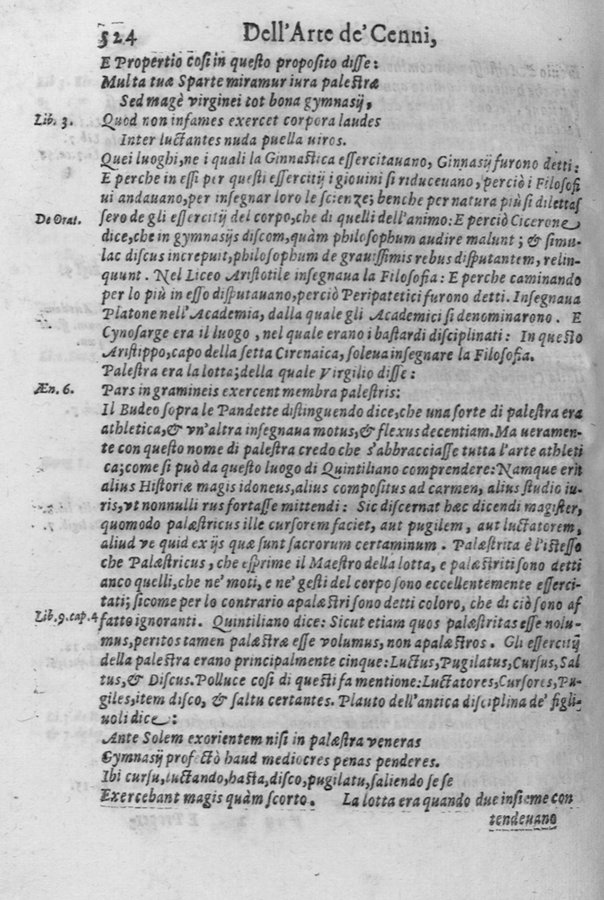 524 Dell'Arte de' Cenni,
E Propertio cosi in questo proposito disse:
Multa tuæ Sparte miramur iura palestræ
Sed magè virginei tot bona gymnasij,
Lib. 3. Quod non infames exercet corpora laudes
Inter luctantes nuda puella viros.
Quei luoghi, ne i quali la Ginnastica essercitauano, Ginnasij furono detti:
E perche in essi per questi essercitij i giouini si riduceuano, perciò i Filosofi
vi andauano, per insegnar loro le scienze; benche per natura più si dilettas
De Orat. sero de gli essercitij del corpo, che di quelli dell'animo: E perciò Cicerone
dice, che in gymnasijs discom, quàm philosophum audire malunt; & simu-
lac discus increpuit, philosophum de grauissimis rebus disputantem, relin-
quunt. Nel Liceo Aristotile insegnaua la Filosofia: E perche caminando
per lo più in esso disputauano, perciò Peripatetici furono detti. Insegnaua
Platone nell'Academia, dalla quale gli Academici si denominarono. E
Cynosarge era il luogo, nel quale erano i bastardi disciplinati: In questo
Aristippo, capo della setta Cirenaica, soleua insegnare la Filosofia.
Palestra era la lotta; della quale Virgilio disse:
Æn. 6. Pars in gramineis exercent membra palestris:
Il Budeo sopra le Pandette distinguendo dice, che una sorte di palestra era
athletica, & vn'altra insegnaua motus, & flexus decentiam. Ma ueramen-
te con questo nome di palestra credo che s'abbracciasse tutta l'arte athleti
ca; come si può da questo luogo di Quintiliano comprendere: Namque erit
alius Historiæ magis idoneus, alius compositus ad carmen, alius studio iu-
ris, vt nonnulli rus fortasse mittendi: Sic discernat hæc dicendi magister,
quomodo palæstricus ille cursorem faciet, aut pugilem, aut luctatorem,
aliud ve quid ex ijs quæ sunt sacrorum certaminum. Palæstrita è l'istesso
che Palæstricus, che esprime il Maestro della lotta, e palæstriti sono detti
anco quelli, che ne' moti, e ne' gesti del corpo sono eccellentemente esserci-
tati; sicome per lo contrario apalæstri sono detti coloro, che di ciò sono af
Lib. 9. cap. 4 fatto ignoranti. Quintiliano dice: Sicut etiam quos palæstritas esse nolu-
mus, peritos tamen palæstræ esse volumus, non apalæstros. Gli essercitij
della palestra erano principalmente cinque: Luctus, Pugilatus, Cursus, Sal
tus, & Discus. Polluce cosi di questi fa mentione: Luctatores, Cursores, Pu-
giles, item disco, & saltu certantes. Plauto dell'antica disciplina de' figli-
uoli dice:
Ante Solem exorientem nisi in palæstra veneras
Gymnasij profectò haud mediocres penas penderes.
Ibi cursu, luctando, hasta, disco, pugilatu, saliendo se se
Exercebant magis quàm scorto. La lotta era quando due insieme con
tendeuano